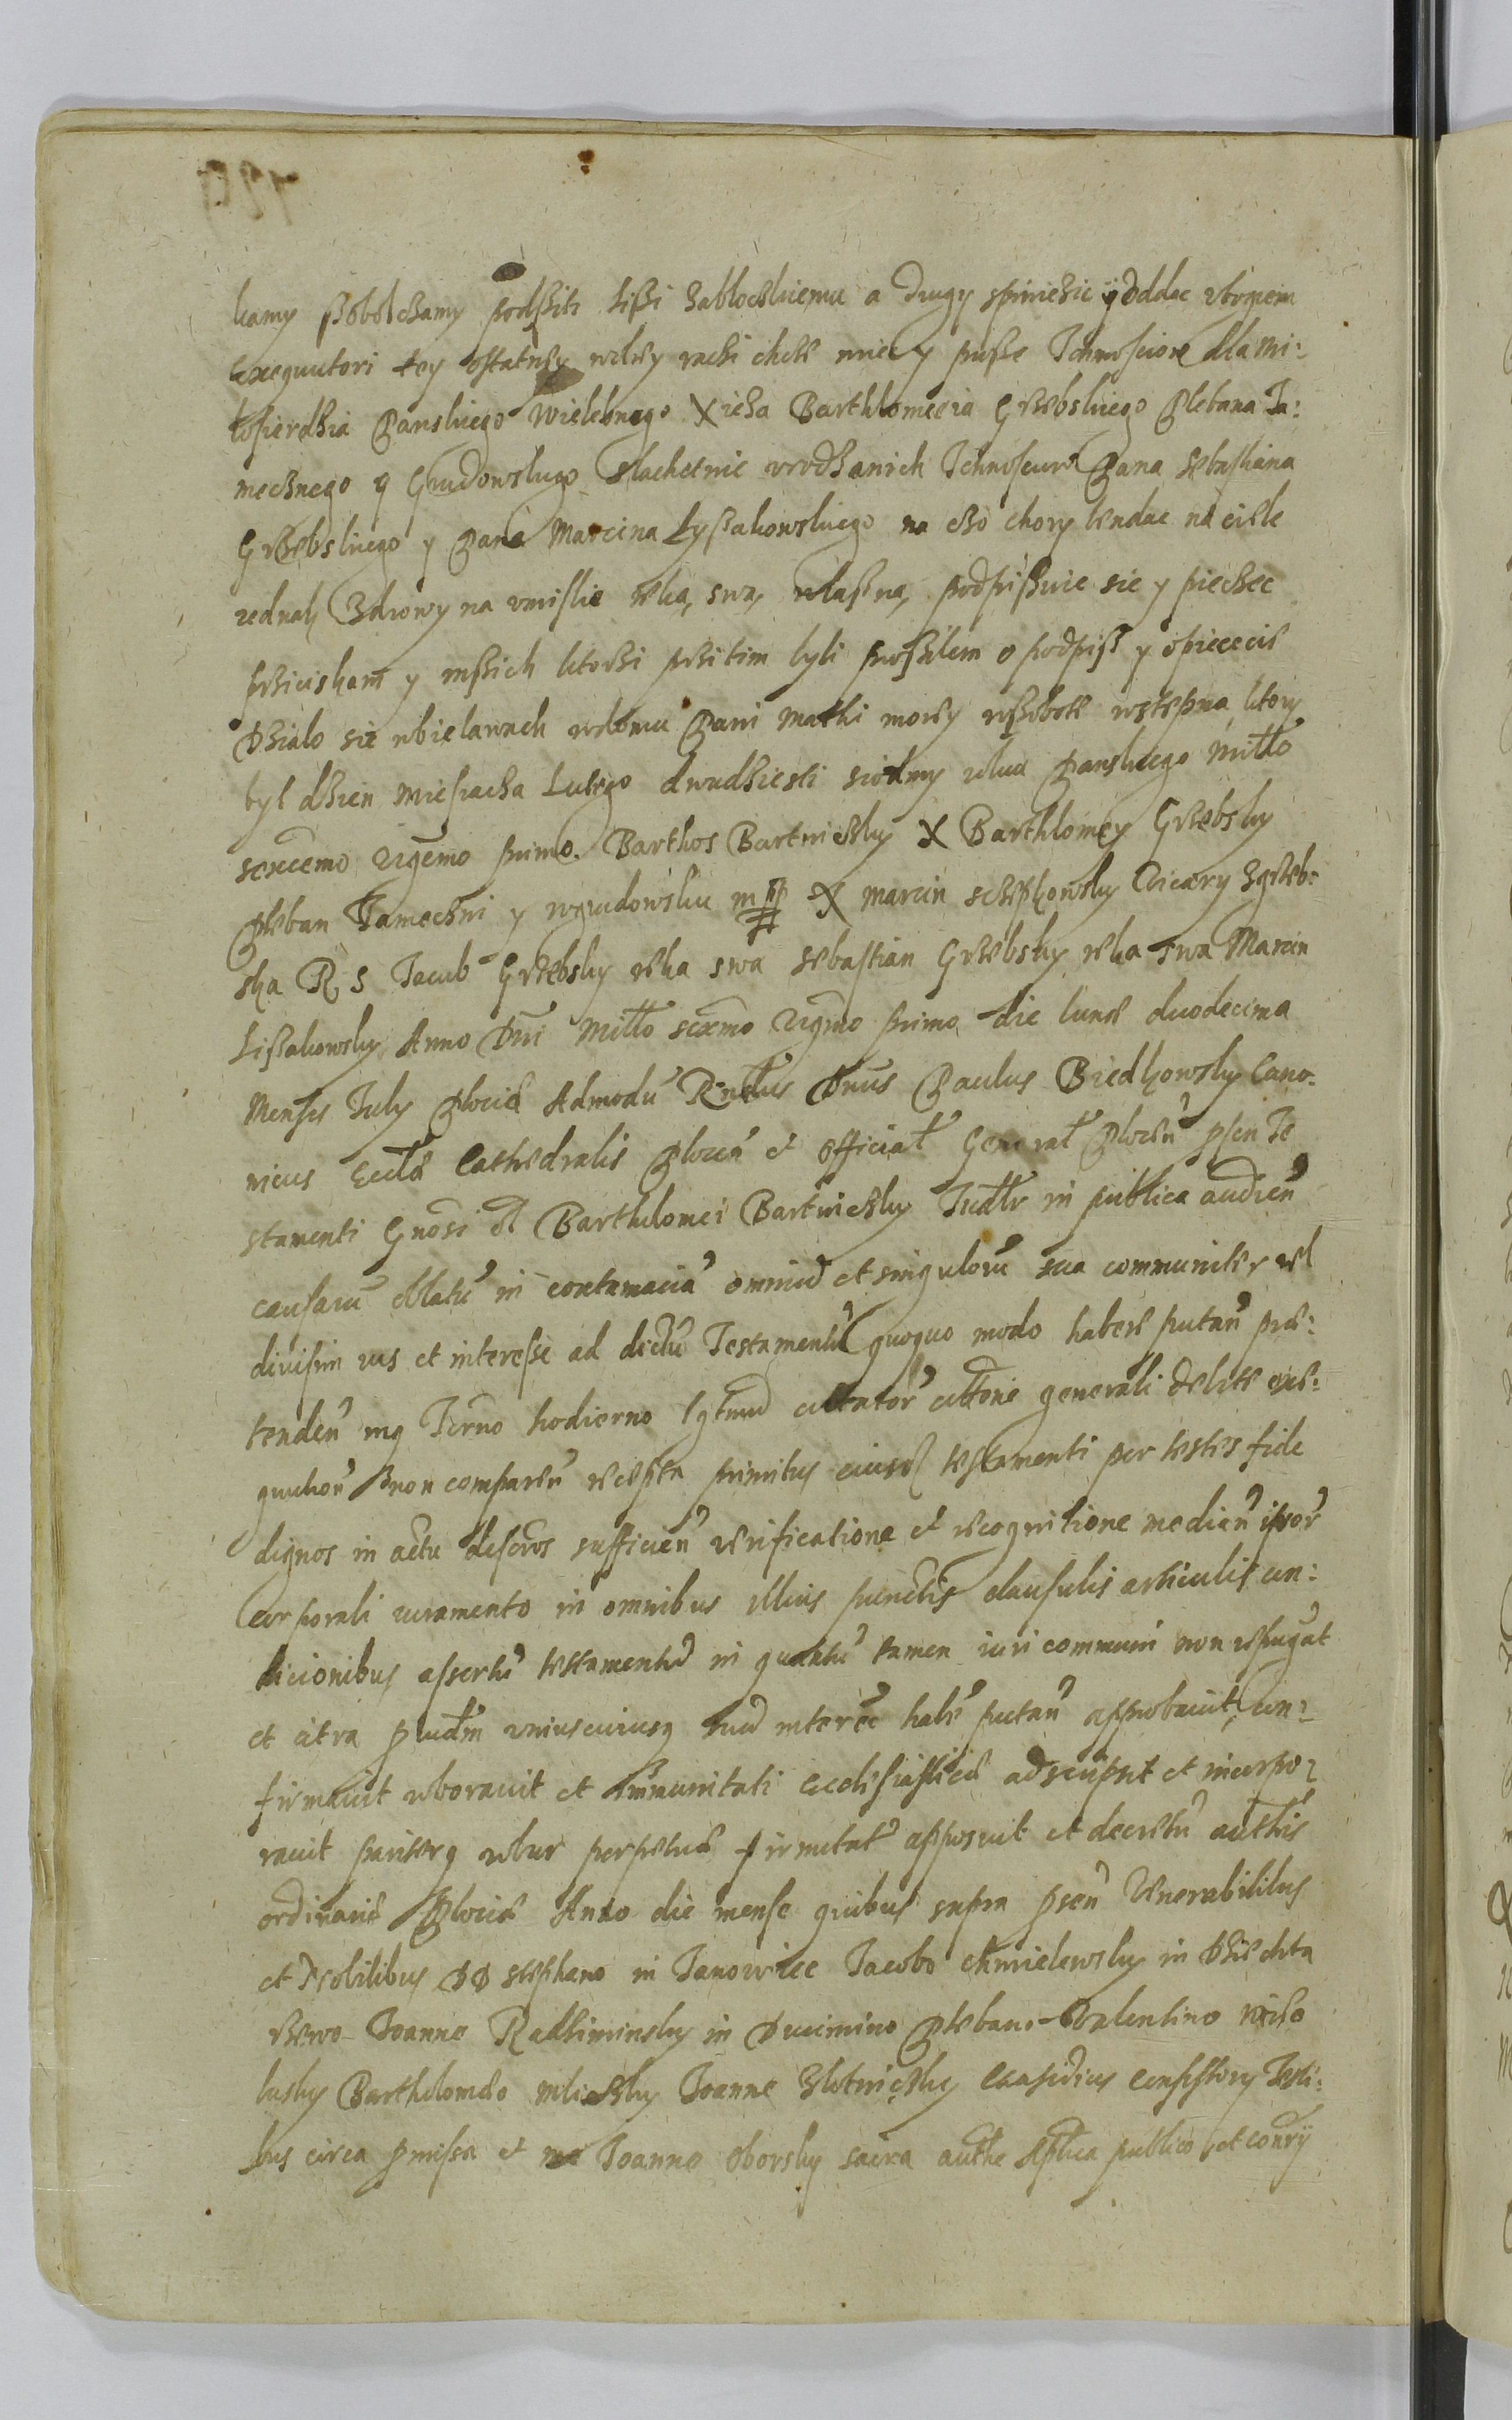 kamy ssobolczamy podszite Lissi Zabloczkiemu a drugy sprinezic y oddac vbogiem
Exequutori tey ostatney woley racżi chcże miec y prosze Ichmosciow dla mi:
losierdzia Panskiego Wielebnego Xieża Barthlomieia Grzebskiego Plebana Ta:
mecznego y Grudowskiego slachetnie vrodzanich Ichmosciow Pana Sebastiana
Grzebskiego y Pana Marcina Lyssakowskiego na czo chory bendac na ciele
iednak Zdrowy na vmislie reką swą własną podpissuie sie y pieczec
prżiciskam y inssich ktorżi pržitim byli prosżilem o podpiss y o pieczecie
Dzialo sie wbielawach wdomu Pani Matki moiey wssobote wstepna ktory
byl dżien Miesiacża Lutego dwudżiesti siodmy roku Panskiego Millo
sexcemo Vigemo primo. Barthos Bartniczky X Barthlomey Grzebsky
Pleban Tameczni y wgrudowsku mpp X Marcin Sczepkowsky Vicary Zgrzeb:
ska R S Iacub Grzebsky reka swa Sebastian Grzebsky reka swa Marcin
Lissakowsky Anno Dni Millo sexmo Vigmo primo die lunæ duodecima
Mensis Iuly Plociæ Admodu Rndus Dnus Paulus Piedkowsky Cano:
nicus Ecclæ Cathedralis Plocen et Officialł Generał Plocen psen Te
stamenti Gnosi ol Barthelomei Bartniczky Iudlr in publica audien
causaru oblatu in contumacia omniu et singuloru sua communiter vel
diuisim ius et interesse ad dictu Testamentu quoquo modo habere putan præ:
tenden inq Termo hodierno lgtme citator citone generali debite exe:
quution non comparen recepta primitus eiusd testamenti per testes fide
dignos in actu descros sufficien verificatione et recognitione median ipsor
Corporali iuramento in omnibus illius punctis clausulis articulis con:
dicionibus assertu testamentu in quantu tamen iuri communi non repugat
et citra piudm vniuscuiusq suu interee habe putan approbauit con:
firmauit roborauit et immunitati ecclesiasticæ adscripsit et incorpo:
rauit pariterq robur perpetuæ firmitat apposuit et decretu authis
ordinariæ Plociæ Anno die mense quibus supra psen Venerabilibus
et Nobilibus DD Stephano in Ianowiec Iacobo Chmielewsky in Dziekta
rzewo Ioanne Radżiminsky in Ducimino Plebano Valentino Niso
lusky Bartholomeo Mlieczky Ioanne Zlotniczky Causidicis Consistory Testi:
bus circa pmissa et me Ioanne Oborsky sacra authe Aplica publico et conrÿ